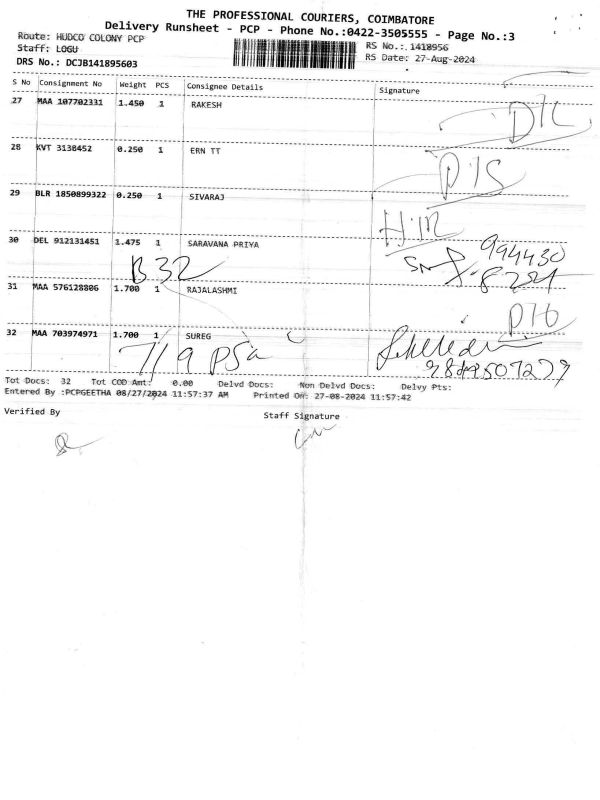 THE PROFESSIONAL COURIERS, COIMBATORE
Delivery Runsheet - PCP - Phone No.:0422-3505555 - Page No.:3
Route: HUDCO COLONY PCP
RS No.: 1418956
Staff: LOGU
RS Date: 27-Aug-2024
DRS No.: DCJB141895603
S No Consignment No Weight PCS Consignee Details Signature
27 MAA 107702331 1.450 1 RAKESH
D/L
28 KVT 3138452 0.250 1 ERN TT
D/S
29 BLR 1850899322 0.250 1 SIVARAJ
H/R
30 DEL 912131451 1.475 1 SARAVANA PRIYA
994430
B 32 8221
31 MAA 576128806 1.700 1 RAJALASHMI
D/6
32 MAA 703974971 1.700 1 SUREG
7/9 PSa
Tot Docs: 32 Tot COD Amt: 0.00 Delvd Docs: Non Delvd Docs: Delvy Pts:
Entered By :PCPGEETHA 08/27/2024 11:57:37 AM Printed On: 27-08-2024 11:57:42
Verified By Staff Signature